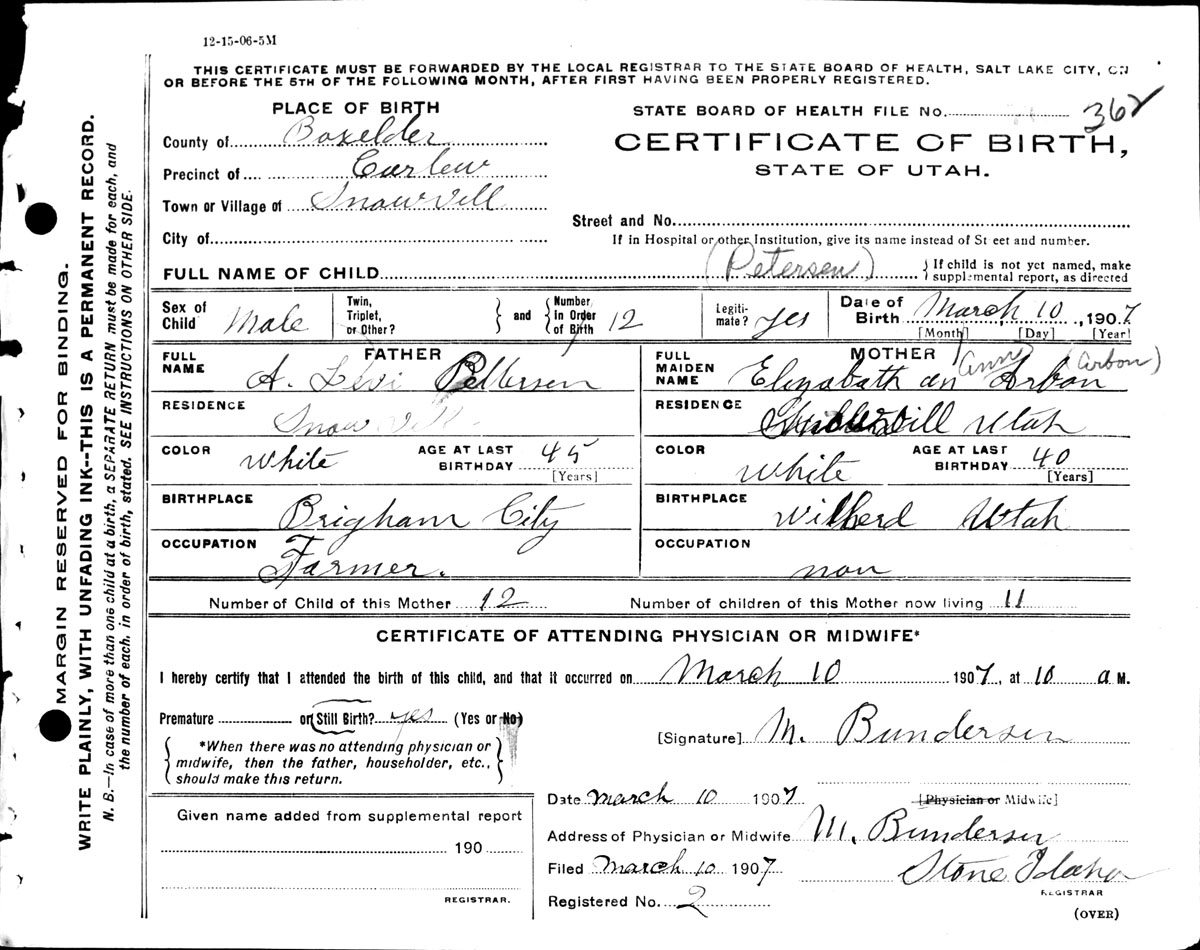 12-15-06-5M
THIS CERTIFICATE MUST BE FORWARDED BY THE LOCAL REGISTRAR TO THE STATE BOARD OF HEALTH, SALT LAKE CITY, ON
OR BEFORE THE 5TH OF THE FOLLOWING MONTH, AFTER FIRST HAVING BEEN PROPERLY REGISTERED.
PLACE OF BIRTH
STATE BOARD OF HEALTH FILE No. 362
County of Boxelder
CERTIFICATE OF BIRTH,
Precinct of Curlew
STATE OF UTAH.
Town or Village of Snowvill
Street and No.
City of
If in Hospital or other Institution, give its name instead of St eet and number.
FULL NAME OF CHILD (Petersen) } If child is not yet named, make
supplemental report, as directed
Sex of Child Male
Twin, Triplet, or Other? } and { Number in Order of Birth 12
Legiti- mate? yes
Date of Birth March 10, 1907
[Month] [Day] [Year]
FATHER
FULL NAME A. Levi Pettersen
RESIDENCE Snowvill
COLOR White AGE AT LAST BIRTHDAY 45
[Years]
BIRTHPLACE Brigham City
OCCUPATION Farmer.
MOTHER
FULL MAIDEN NAME Elizabath an Arbon (Anne Arbon)
RESIDENCE Utah
COLOR White AGE AT LAST BIRTHDAY 40
[Years]
BIRTHPLACE Willerd Utah
OCCUPATION non
Number of Child of this Mother 12 Number of children of this Mother now living 11
CERTIFICATE OF ATTENDING PHYSICIAN OR MIDWIFE*
I hereby certify that I attended the birth of this child, and that it occurred on March 10 1907, at 10 a M.
Premature or Still Birth? yes (Yes or No)
*When there was no attending physician or
midwife, then the father, householder, etc.,
should make this return.
[Signature] M. Bundersen
[Physician or Midwife]
Given name added from supplemental report
190
REGISTRAR.
Date March 10 1907
Address of Physician or Midwife M. Bundersen
Filed March 10 1907 Stone Idaho
REGISTRAR
Registered No. 2
(OVER)
MARGIN RESERVED FOR BINDING.
WRITE PLAINLY, WITH UNFADING INK--THIS IS A PERMANENT RECORD.
N. B.—In case of more than one child at a birth, a SEPARATE RETURN must be made for each, and
the number of each, in order of birth, stated. SEE INSTRUCTIONS ON OTHER SIDE.